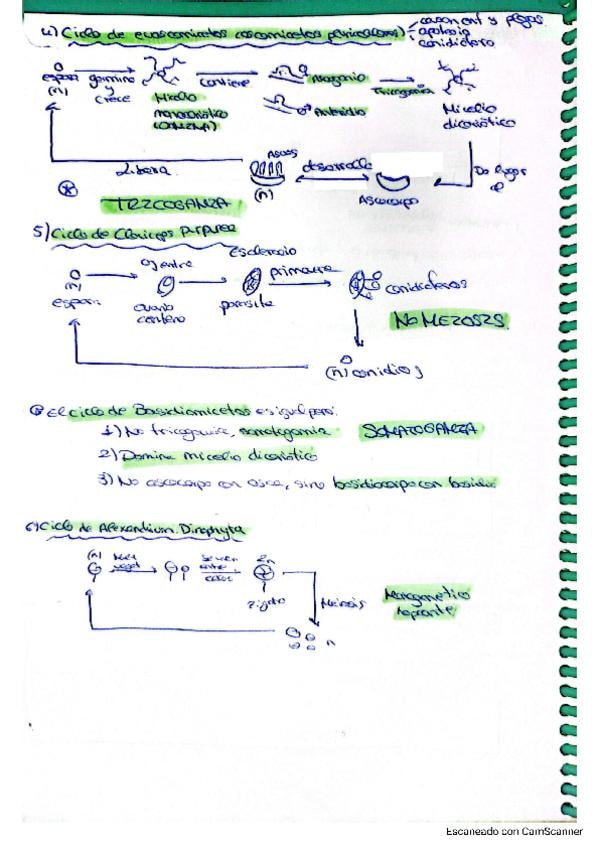 4) Ciclo de euascomicetos ascomicetos
apotecio
conidióforo
espora
(n)
germina
y
crece
Micelio
monocariótico
contiene
Ascogonio
Anteridio
Tricogamia
Micelio
dicariótico
Libera
Ascos
(n)
desarrolla
Ascocarpo
Da lugar
a
TRICOGAMIA
5) Ciclo de Claviceps purpurea
(n)
espora
ovario
centeno
Esclerocio
parasita
primavera
conidióforos
No MEIOSIS
(n) conidios
El ciclo de Basidiomicetos es igual pero:
1) No tricogamia, somatogamia
SOMATOGAMIA
2) Domina micelio dicariótico
3) No ascocarpo con ascos, sino basidiocarpo con basidios
6) Ciclo de Alexandrium. Dinophyta
(n)
2n
Zigoto
Meiosis
n
Monogenético
haplonte
Escaneado con CamScanner